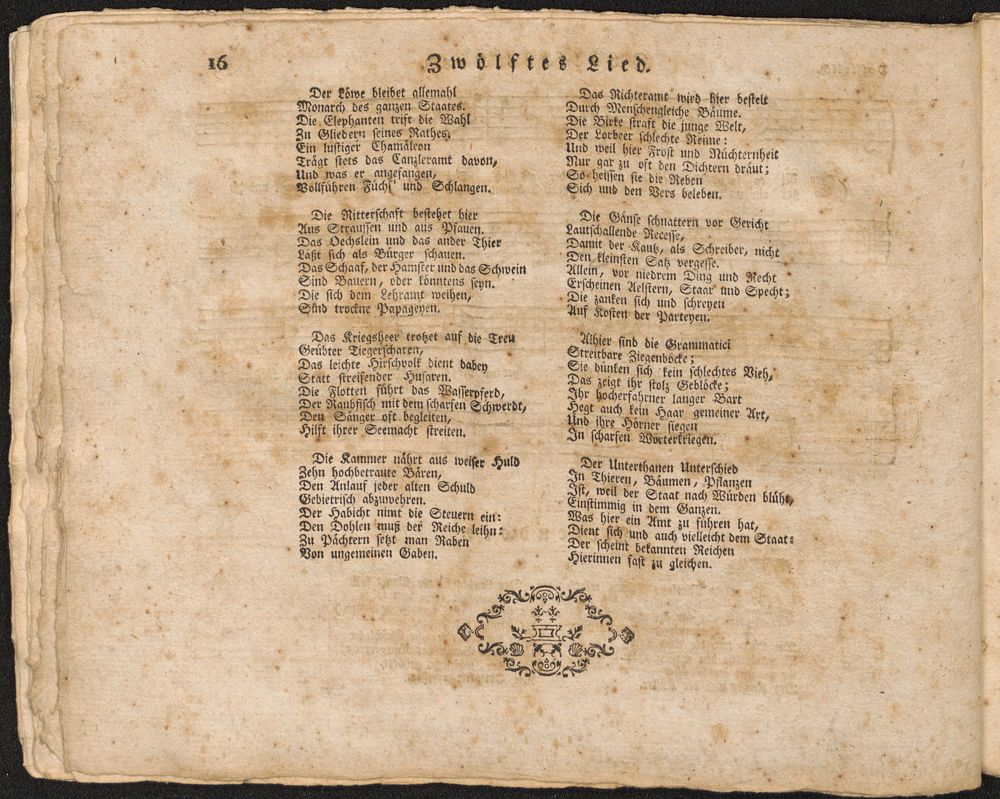 16
Zwölftes Lied.
Der Löwe bleibet allemahl
Monarch des ganzen Staates.
Die Elephanten trift die Wahl
Zu Gliedern seines Rathes.
Ein lustiger Chamäleon
Trägt stets das Canzleramt davon,
Und was er angefangen,
Vollführen Füchs' und Schlangen.
Die Ritterschaft bestehet hier
Aus Straussen und aus Pfauen.
Das Oechslein und das ander Thier
Läßt sich als Bürger schauen.
Das Schaaf, der Hamster und das Schwein
Sind Bauern, oder könntens seyn.
Die sich dem Lehramt weihen,
Sind trockne Papageyen.
Das Kriegsheer trotzet auf die Treu
Geübter Tiegerscharen,
Das leichte Hirschvolk dient dabey
Statt streifender Husaren.
Die Flotten führt das Wasserpferd,
Der Raubfisch mit dem scharfen Schwerdt,
Den Sänger oft begleiten,
Hilft ihrer Seemacht streiten.
Die Kammer nährt aus weiser Huld
Zehn hochbetraute Bären,
Den Anlauf jeder alten Schuld
Gebietrisch abzuwehren.
Der Habicht nimt die Steuern ein:
Den Dohlen muß der Reiche leihn:
Zu Pächtern setzt man Raben
Von ungemeinen Gaben.
Das Richteramt wird hier bestelt
Durch Menschengleiche Bäume.
Die Birke straft die junge Welt,
Der Lorbeer schlechte Reime:
Und weil hier Frost und Nüchternheit
Nur gar zu oft den Dichtern dräut;
So heissen sie die Reben
Sich und den Vers beleben.
Die Gänse schnattern vor Gericht
Lautschallende Recesse,
Damit der Kautz, als Schreiber, nicht
Den kleinsten Satz vergesse.
Allein, vor niedrem Ding und Recht
Erscheinen Aelstern, Staar und Specht;
Die zanken sich und schreyen
Auf Kosten der Parteyen.
Alhier sind die Grammatici
Streitbare Ziegenböcke;
Sie dünken sich kein schlechtes Vieh,
Das zeigt ihr stolz Geblöcke;
Ihr hocherfahrner langer Bart
Hegt auch kein Haar gemeiner Art,
Und ihre Hörner siegen
In scharfen Wörterkriegen.
Der Unterthanen Unterschied
In Thieren, Bäumen, Pflanzen
Ist, weil der Staat nach Würden blüht,
Einstimmig in dem Ganzen.
Was hier ein Amt zu führen hat,
Dient sich und auch vielleicht dem Staat:
Der scheint bekannten Reichen
Hierinnen fast zu gleichen.